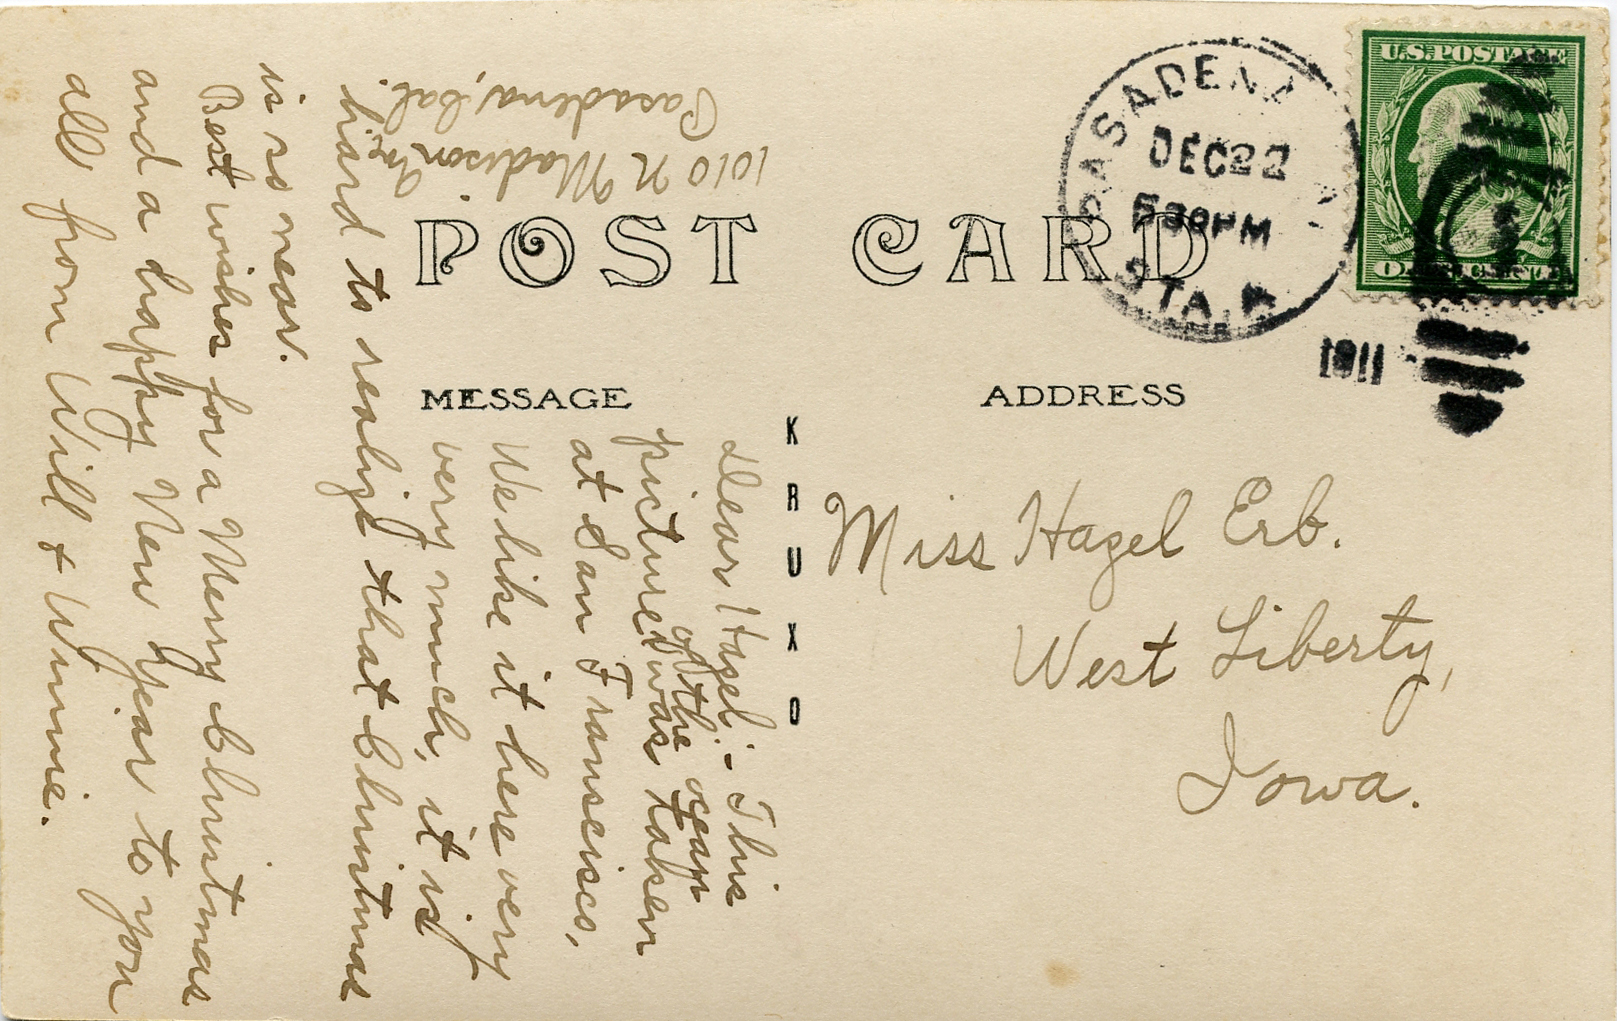 POST CARD
MESSAGE
ADDRESS
KRUXO
U.S. POSTAGE
PASADENA
DEC 22
5 30 PM
STA. A
1911
1010 N Madison Ave,
Pasadena, Cal.
Dear Hazel:- This
picture was taken
of the ocean
at San Franseisco,
We like it here very
very much, it is
hard to realize that Christmas
is so near.
Best wishes for a Merry Christmas
and a happy New Year to you
all from Will + Winnie.
Miss Hazel Erb.
West Liberty,
Iowa.